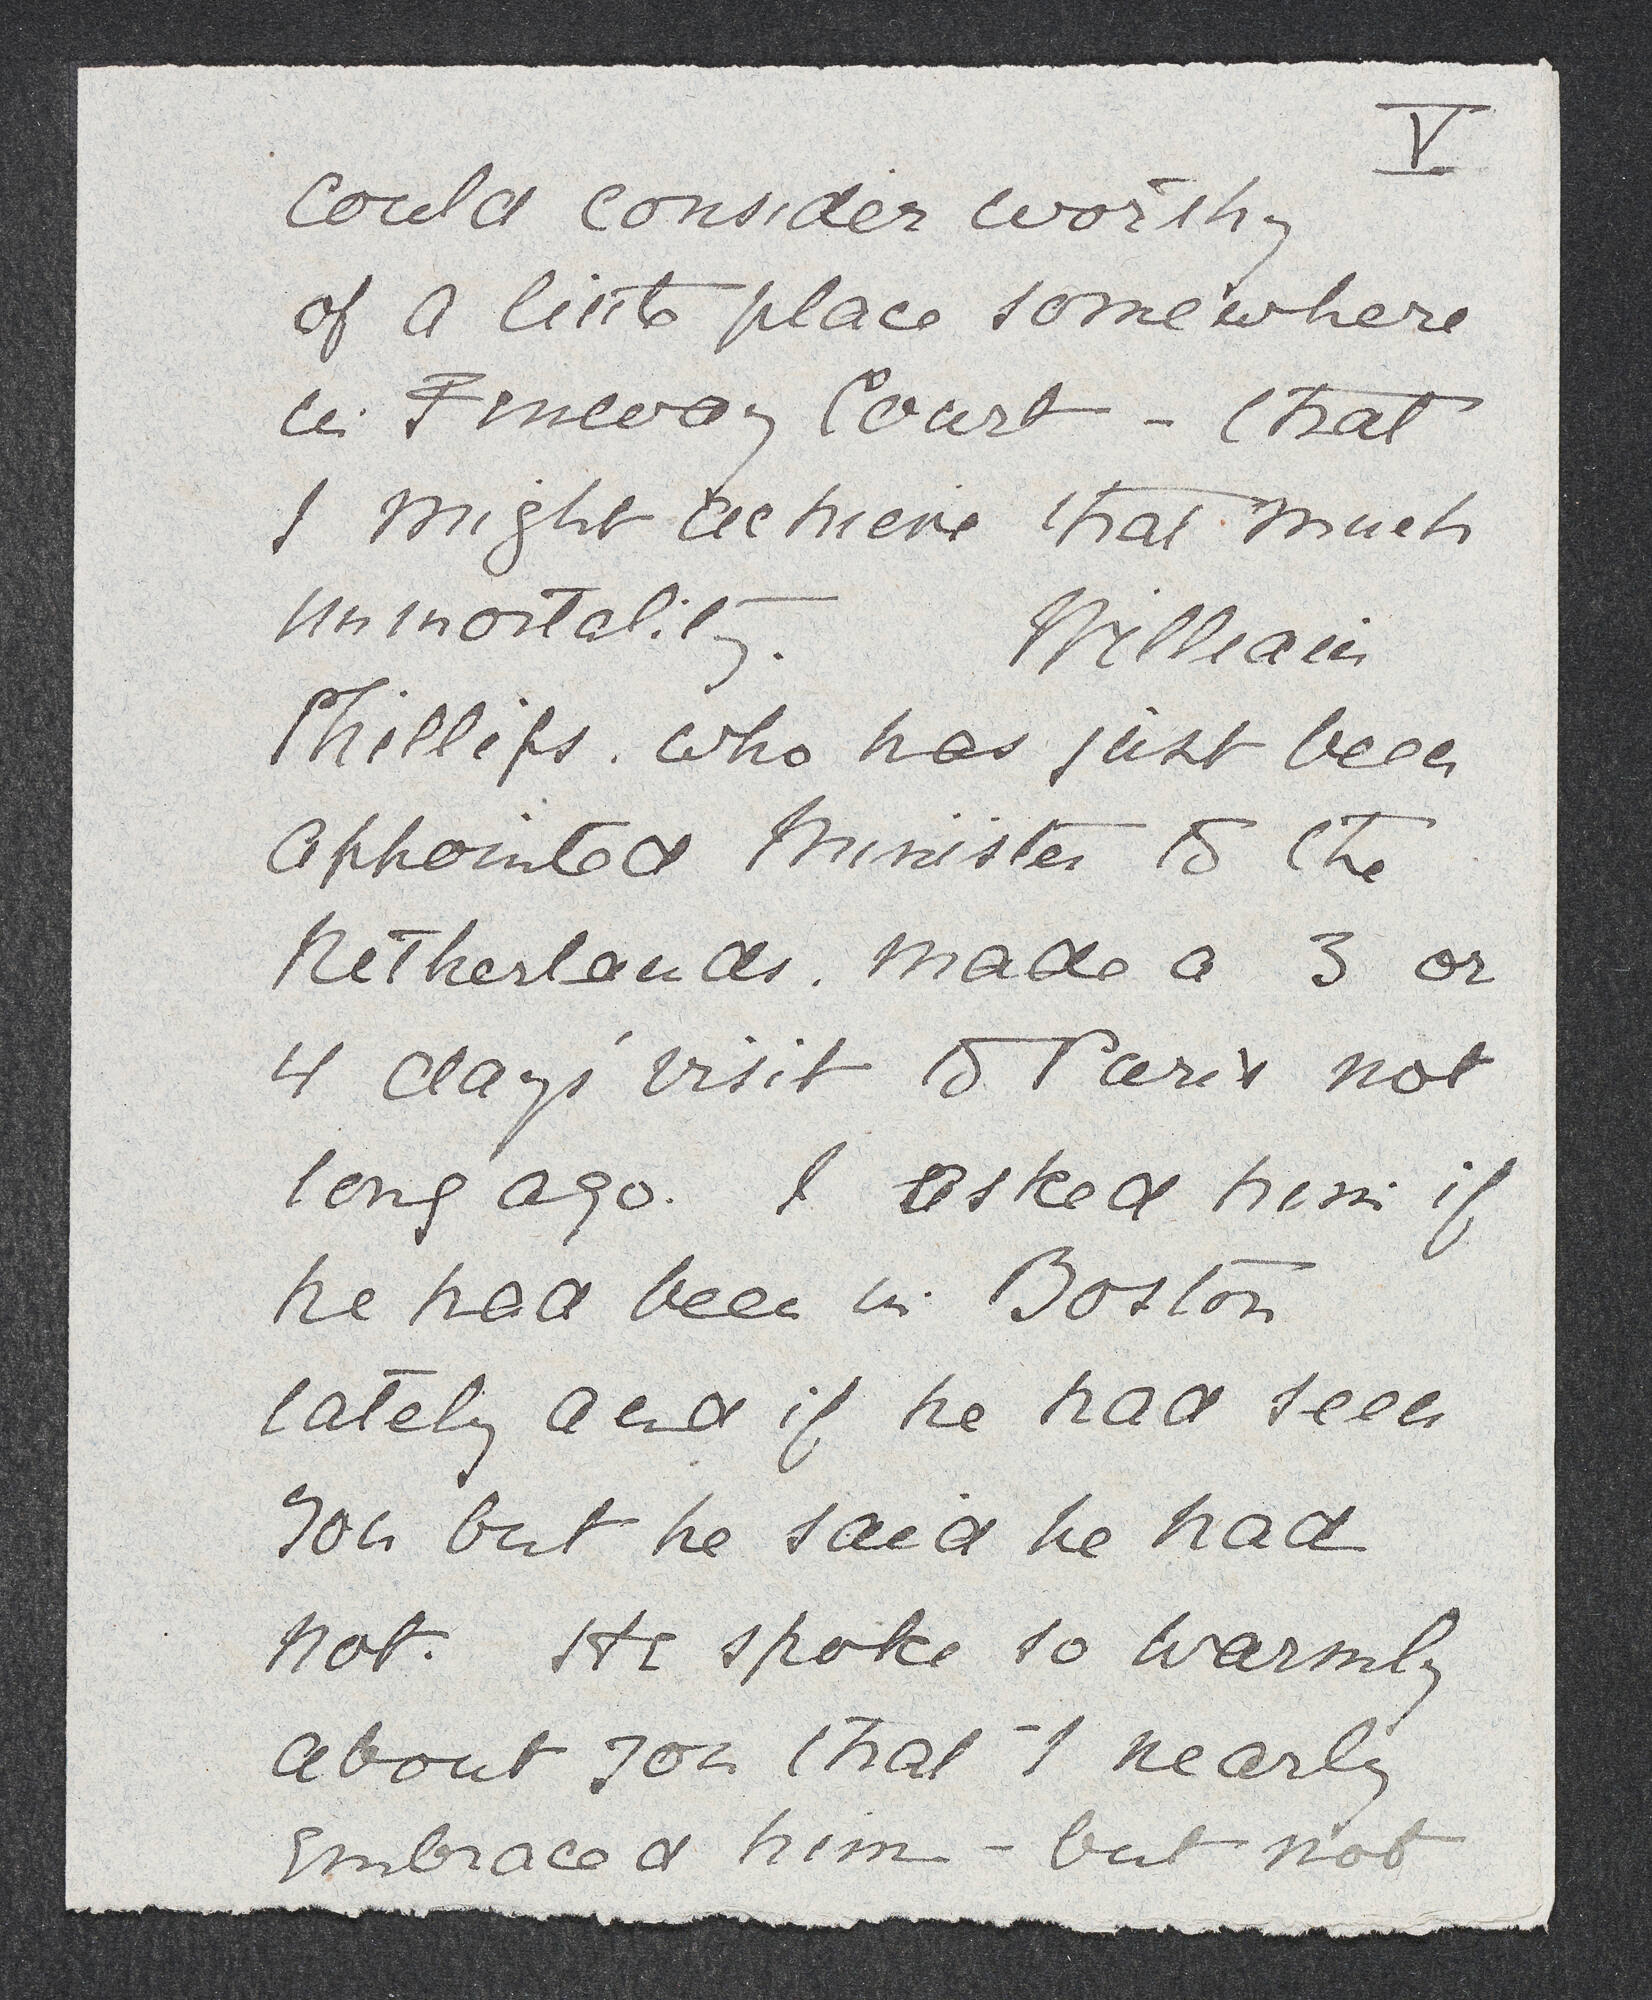 V
could consider worthy
of a little place somewhere
in Fenway Court - that
I might achieve that much
immortality. William
Phillips. who has just been
appointed Minister to the
Netherlands. made a 3 or
4 days' visit to Paris not
long ago. I asked him if
he had been in Boston
lately and if he had seen
you but he said he had
not. He spoke so warmly
about you that I nearly
embraced him - but not